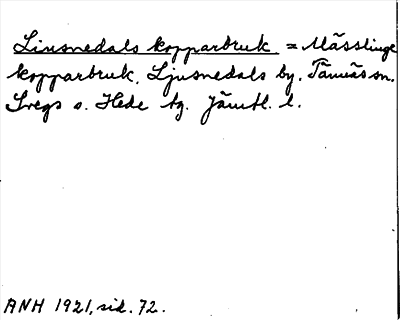 Liusnedals kopparbruk = Mässlinge
kopparbruk. Ljusnedals by. Tännäs sn.
Svegs o. Hede tg. Jämtl. l.
ANH 1921, sid. 72.